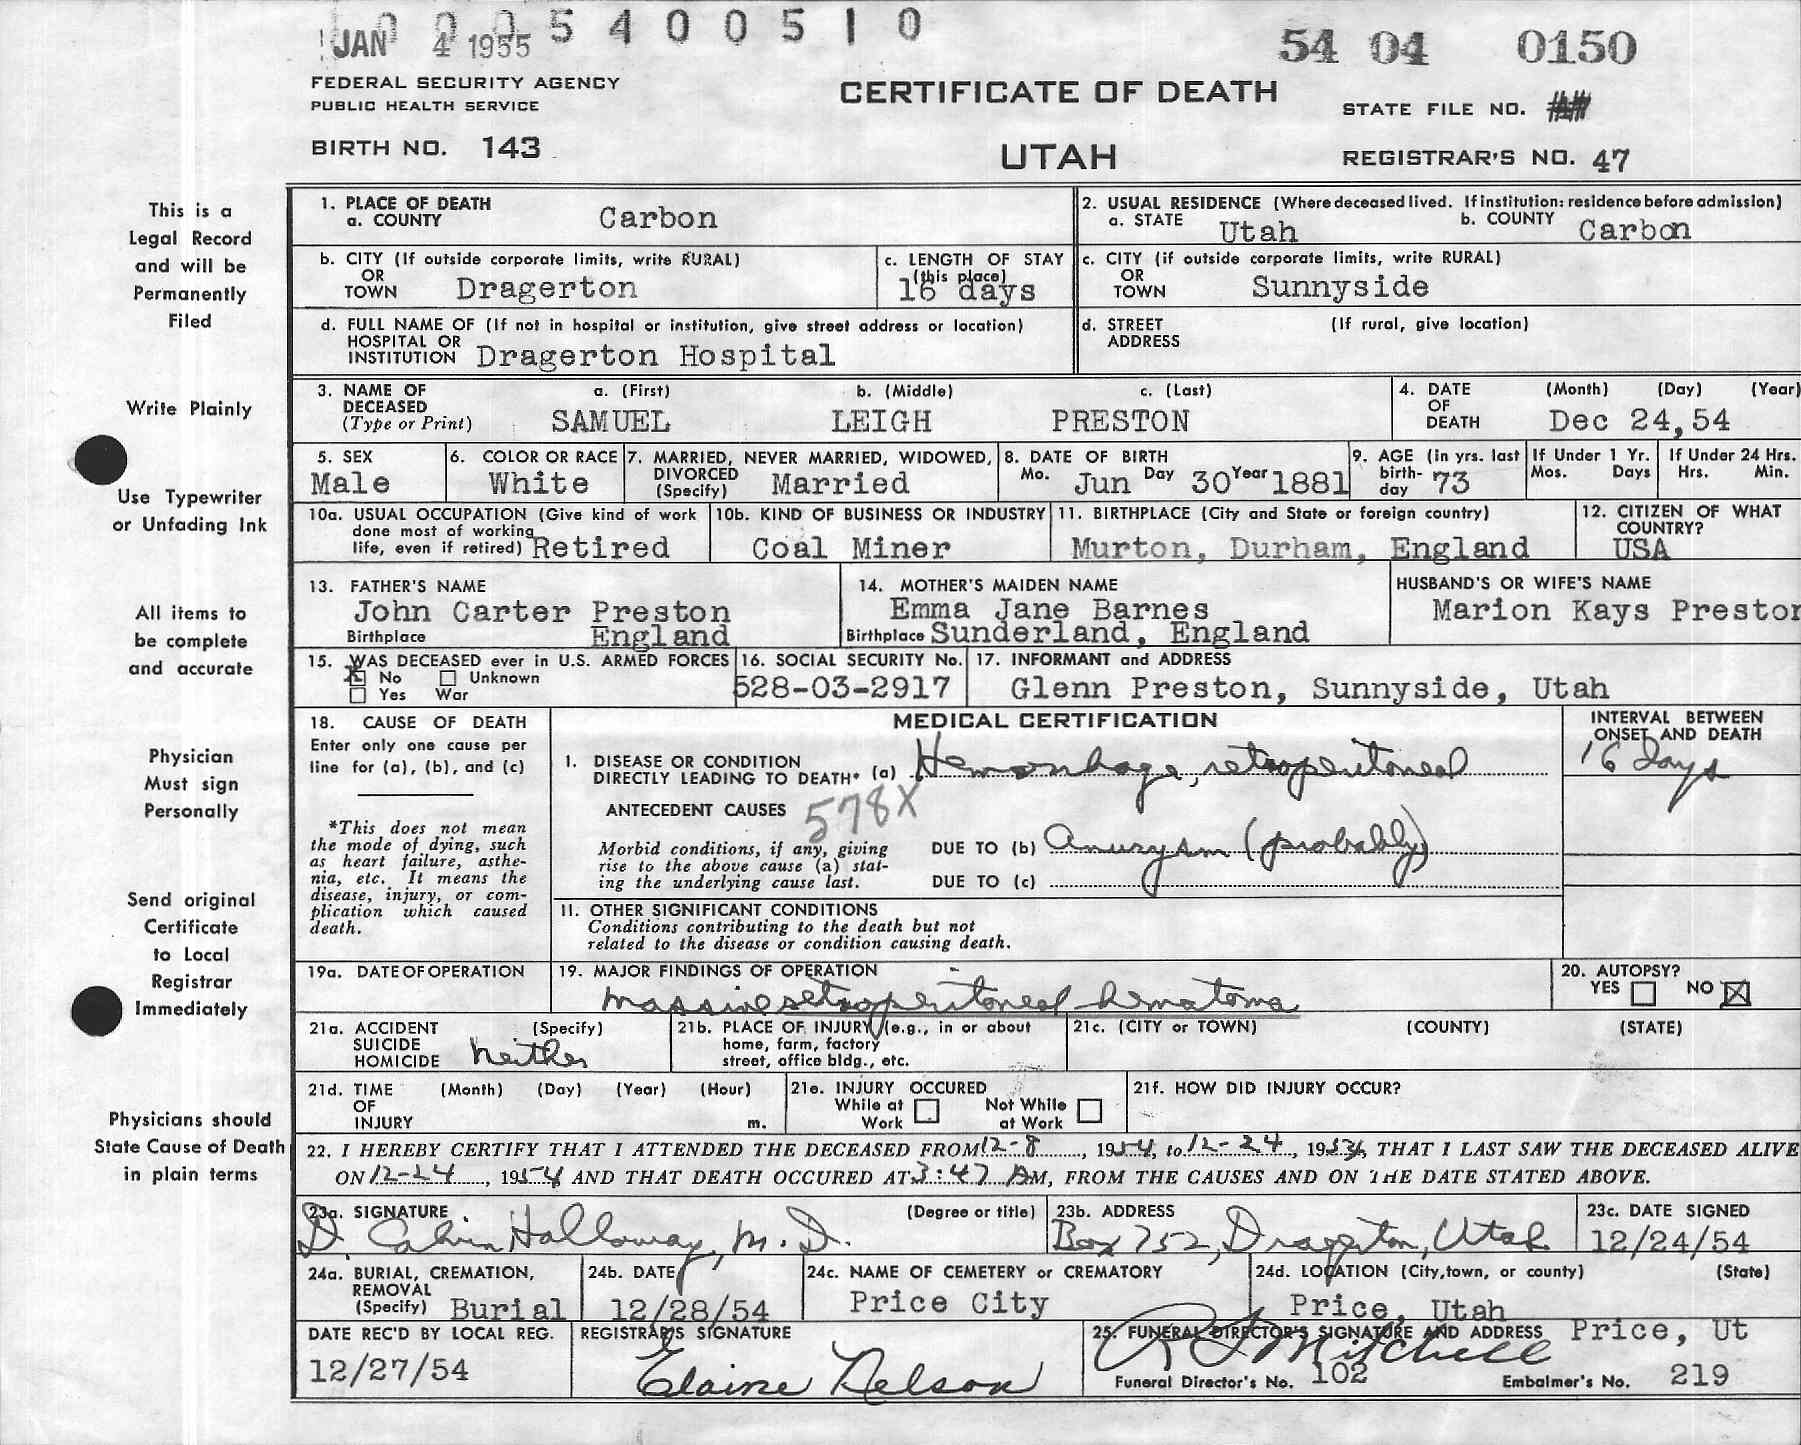 000 5 4 0 0 5 1 0
JAN 4 1955
54 04 0150
FEDERAL SECURITY AGENCY
PUBLIC HEALTH SERVICE
CERTIFICATE OF DEATH
STATE FILE NO.
BIRTH NO. 143
UTAH
REGISTRAR'S NO. 47
This is a
Legal Record
and will be
Permanently
Filed
Write Plainly
Use Typewriter
or Unfading Ink
All items to
be complete
and accurate
Physician
Must sign
Personally
Send original
Certificate
to Local
Registrar
Immediately
Physicians should
State Cause of Death
in plain terms
1. PLACE OF DEATH
a. COUNTY Carbon
2. USUAL RESIDENCE (Where deceased lived. If institution: residence before admission)
a. STATE Utah b. COUNTY Carbon
b. CITY (If outside corporate limits, write RURAL)
OR
TOWN Dragerton
c. LENGTH OF STAY
(this place)
16 days
c. CITY (if outside corporate limits, write RURAL)
OR
TOWN Sunnyside
d. FULL NAME OF (If not in hospital or institution, give street address or location)
HOSPITAL OR
INSTITUTION Dragerton Hospital
d. STREET (If rural, give location)
ADDRESS
3. NAME OF a. (First) b. (Middle) c. (Last)
DECEASED
(Type or Print) SAMUEL LEIGH PRESTON
4. DATE (Month) (Day) (Year)
OF
DEATH Dec 24,54
5. SEX
Male
6. COLOR OR RACE
White
7. MARRIED, NEVER MARRIED, WIDOWED,
DIVORCED
(Specify) Married
8. DATE OF BIRTH
Mo. Jun Day 30 Year 1881
9. AGE (in yrs. last
birth-
day 73
If Under 1 Yr.
Mos. Days
If Under 24 Hrs.
Hrs. Min.
10a. USUAL OCCUPATION (Give kind of work
done most of working
life, even if retired) Retired
10b. KIND OF BUSINESS OR INDUSTRY
Coal Miner
11. BIRTHPLACE (City and State or foreign country)
Murton, Durham, England
12. CITIZEN OF WHAT
COUNTRY?
USA
13. FATHER'S NAME
John Carter Preston
Birthplace England
14. MOTHER'S MAIDEN NAME
Emma Jane Barnes
Birthplace Sunderland, England
HUSBAND'S OR WIFE'S NAME
Marion Kays Preston
15. WAS DECEASED ever in U.S. ARMED FORCES
X No Unknown
Yes War
16. SOCIAL SECURITY No.
528-03-2917
17. INFORMANT and ADDRESS
Glenn Preston, Sunnyside, Utah
18. CAUSE OF DEATH
Enter only one cause per
line for (a), (b), and (c)
*This does not mean
the mode of dying, such
as heart failure, asthe-
nia, etc. It means the
disease, injury, or com-
plication which caused
death.
MEDICAL CERTIFICATION
INTERVAL BETWEEN
ONSET AND DEATH
16 days
1. DISEASE OR CONDITION
DIRECTLY LEADING TO DEATH* (a) Hemorrhage, retroperitoneal
ANTECEDENT CAUSES 578X
Morbid conditions, if any, giving
rise to the above cause (a) stat-
ing the underlying cause last.
DUE TO (b) Anurysm (probably)
DUE TO (c)
11. OTHER SIGNIFICANT CONDITIONS
Conditions contributing to the death but not
related to the disease or condition causing death.
19a. DATE OF OPERATION
19. MAJOR FINDINGS OF OPERATION
massive retroperitoneal hematoma
20. AUTOPSY?
YES NO X
21a. ACCIDENT (Specify)
SUICIDE
HOMICIDE neither
21b. PLACE OF INJURY (e.g., in or about
home, farm, factory
street, office bldg., etc.
21c. (CITY or TOWN) (COUNTY) (STATE)
21d. TIME (Month) (Day) (Year) (Hour)
OF
INJURY m.
21e. INJURY OCCURED
While at Work Not While at Work
21f. HOW DID INJURY OCCUR?
22. I HEREBY CERTIFY THAT I ATTENDED THE DECEASED FROM 12-8, 1954, to 12-24, 1954, THAT I LAST SAW THE DECEASED ALIVE
ON 12-24, 1954 AND THAT DEATH OCCURED AT 3:47 AM, FROM THE CAUSES AND ON THE DATE STATED ABOVE.
23a. SIGNATURE (Degree or title)
D. Calvin Holloway, M.D.
23b. ADDRESS
Box 752, Dragerton, Utah
23c. DATE SIGNED
12/24/54
24a. BURIAL, CREMATION,
REMOVAL
(Specify) Burial
24b. DATE
12/28/54
24c. NAME OF CEMETERY or CREMATORY
Price City
24d. LOCATION (City, town, or county) (State)
Price, Utah
DATE REC'D BY LOCAL REG.
12/27/54
REGISTRAR'S SIGNATURE
Elaine Nelson
25. FUNERAL DIRECTOR'S SIGNATURE AND ADDRESS Price, Ut
Mitchell
Funeral Director's No. 102 Embalmer's No. 219